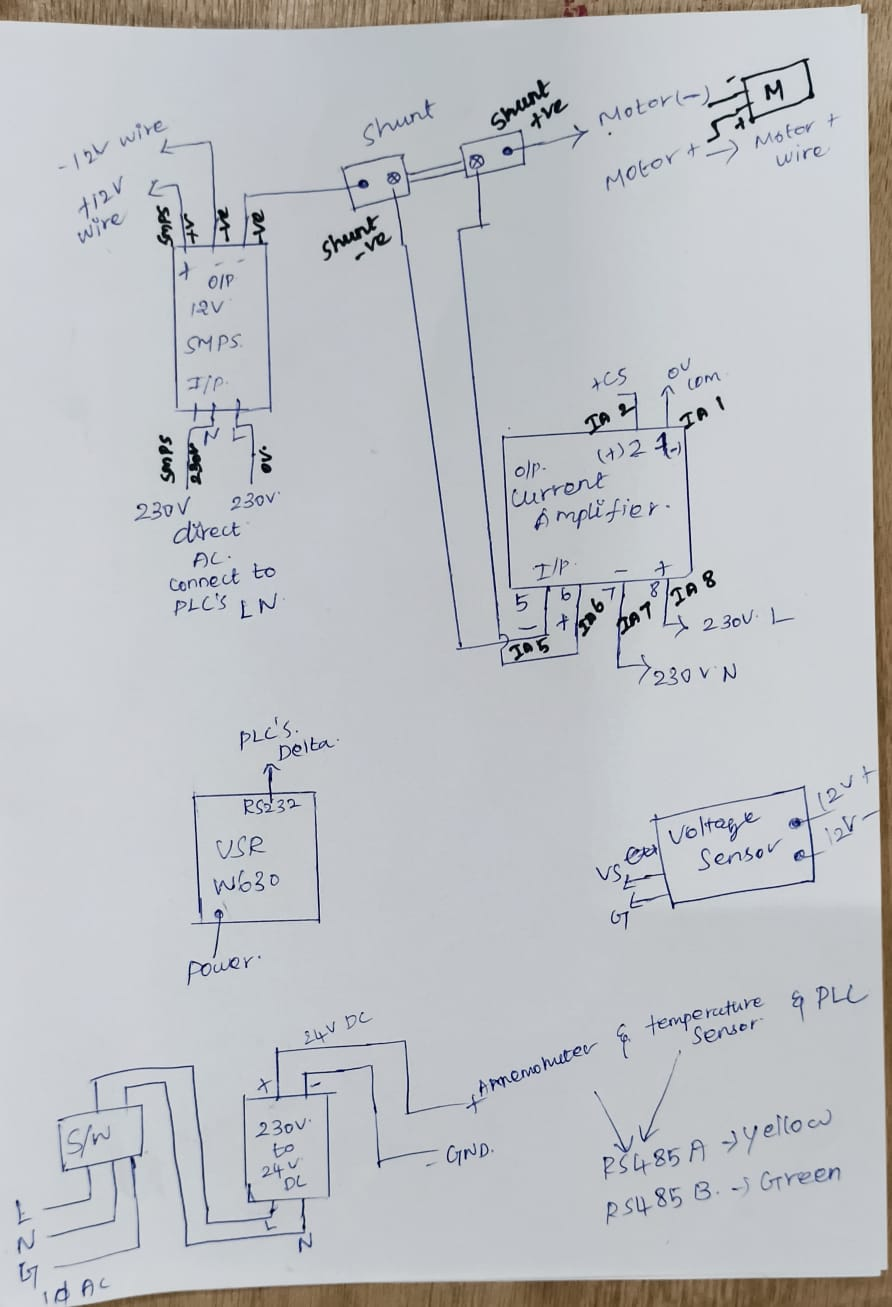 -12V wire
+12V
wire
SMPS
+V
-Ve
-Ve
+ - -
O/P
12V
SMPS
I/P
N L
SMPS
230V
0V
230V 230V
direct
AC.
connect to
PLC'S LN
Shunt
Shunt
-ve
Shunt
+ve
Motor(-)
- M
+
Motor + → Motor +
wire
+CS
IA 2
0V
com
IA 1
O/P. (+) 2 1(-)
Current
Amplifier.
I/P. - +
5 6 7 8
- +
IA5
IA6
IA7
IA8
230V. L
230V N
PLC'S.
Delta.
RS232
VSR
W630
Power.
Voltage
Sensor
12V +
12V -
VS
G
24V DC
+ -
230V.
to
24V
DC
L
N
S/W
L
N
G
1ϕ AC
+ Annemometer & temperature & PLC
Sensor
- GND.
RS485 A → Yellow
RS485 B. → Green